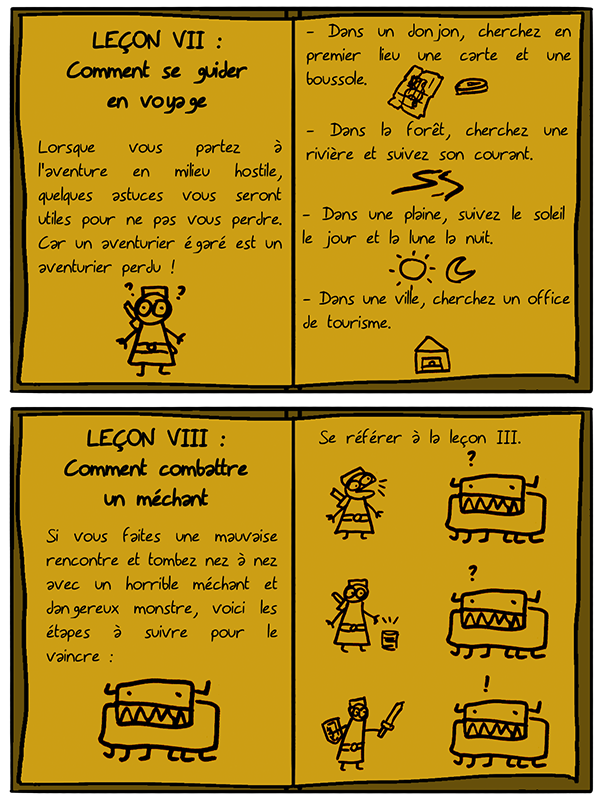 LEÇON VII :
Comment se guider
en voyage
Lorsque vous partez à
l'aventure en milieu hostile,
quelques astuces vous seront
utiles pour ne pas vous perdre.
Car un aventurier égaré est un
aventurier perdu !
? ?
- Dans un donjon, cherchez en
premier lieu une carte et une
boussole.
- Dans la forêt, cherchez une
rivière et suivez son courant.
- Dans une plaine, suivez le soleil
le jour et la lune la nuit.
- Dans une ville, cherchez un office
de tourisme.
LEÇON VIII :
Comment combattre
un méchant
Si vous faites une mauvaise
rencontre et tombez nez à nez
avec un horrible méchant et
dangereux monstre, voici les
étapes à suivre pour le
vaincre :
Se référer à la leçon III.
?
?
!